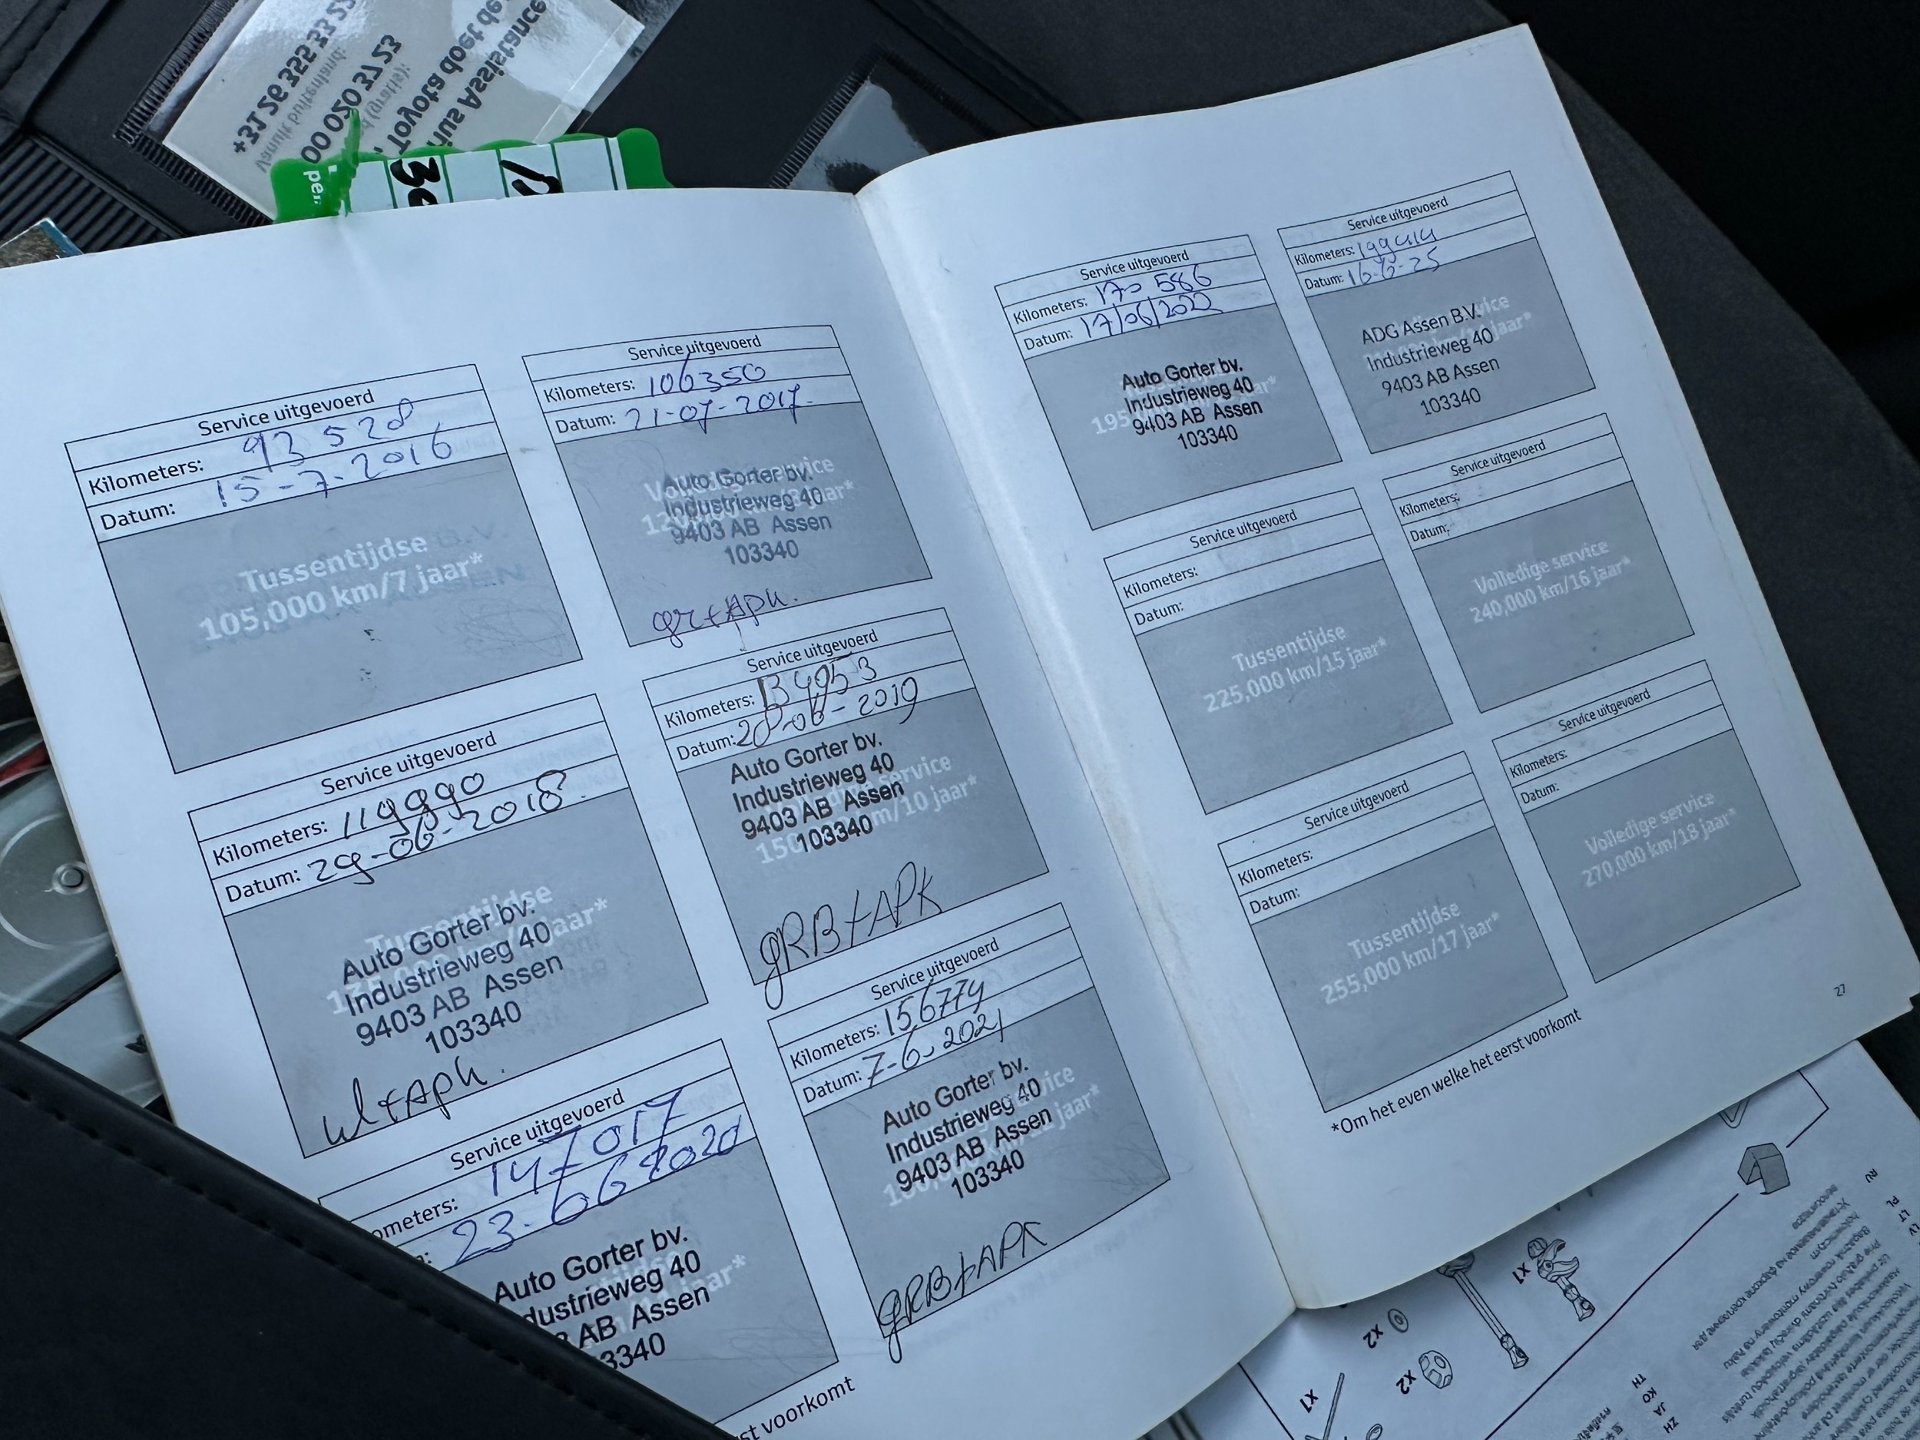 +31 26 355 33 22
Vanuit buitenland:
00 020 37 23
(gratis):
Toyota doet de
Assistance
per.
30
Service uitgevoerd
Kilometers: 93 528
Datum: 15-7-2016
Tussentijdse
105,000 km/7 jaar*
Service uitgevoerd
Kilometers: 106350
Datum: 21-07-2017.
Auto Gorter bv.
Industrieweg 40
9403 AB Assen
103340
gr+APK.
Service uitgevoerd
Kilometers: 119990
Datum: 29-06-2018.
Tussentijdse
jaar*
Auto Gorter bv.
Industrieweg 40
9403 AB Assen
103340
+APK.
Service uitgevoerd
Kilometers: 134953
Datum: 20-06-2019
service
150,000 km/10 jaar*
Auto Gorter bv.
Industrieweg 40
9403 AB Assen
103340
gRB+APK
Service uitgevoerd
ometers: 147017
23-06-2020
jaar*
Auto Gorter bv.
dustrieweg 40
AB Assen
3340
Service uitgevoerd
Kilometers: 156774
Datum: 7-6-2021
jaar*
Auto Gorter bv.
Industrieweg 40
9403 AB Assen
103340
gRB+APK
st voorkomt
Service uitgevoerd
Kilometers: 170 586
Datum: 17/06/2022
Auto Gorter bv.
Industrieweg 40
9403 AB Assen
103340
Service uitgevoerd
Kilometers: 199414
Datum: 16-6-25
jaar*
ADG Assen B.V.
Industrieweg 40
9403 AB Assen
103340
Service uitgevoerd
Kilometers:
Datum:
Tussentijdse
225,000 km/15 jaar*
Service uitgevoerd
Kilometers:
Datum:
Volledige service
240,000 km/16 jaar*
Service uitgevoerd
Kilometers:
Datum:
Tussentijdse
255,000 km/17 jaar*
Service uitgevoerd
Kilometers:
Datum:
Volledige service
270,000 km/18 jaar*
*Om het even welke het eerst voorkomt
27
x1
x2
x2
x1
RU
PL
LT
LV
TH
KO
JA
ZH